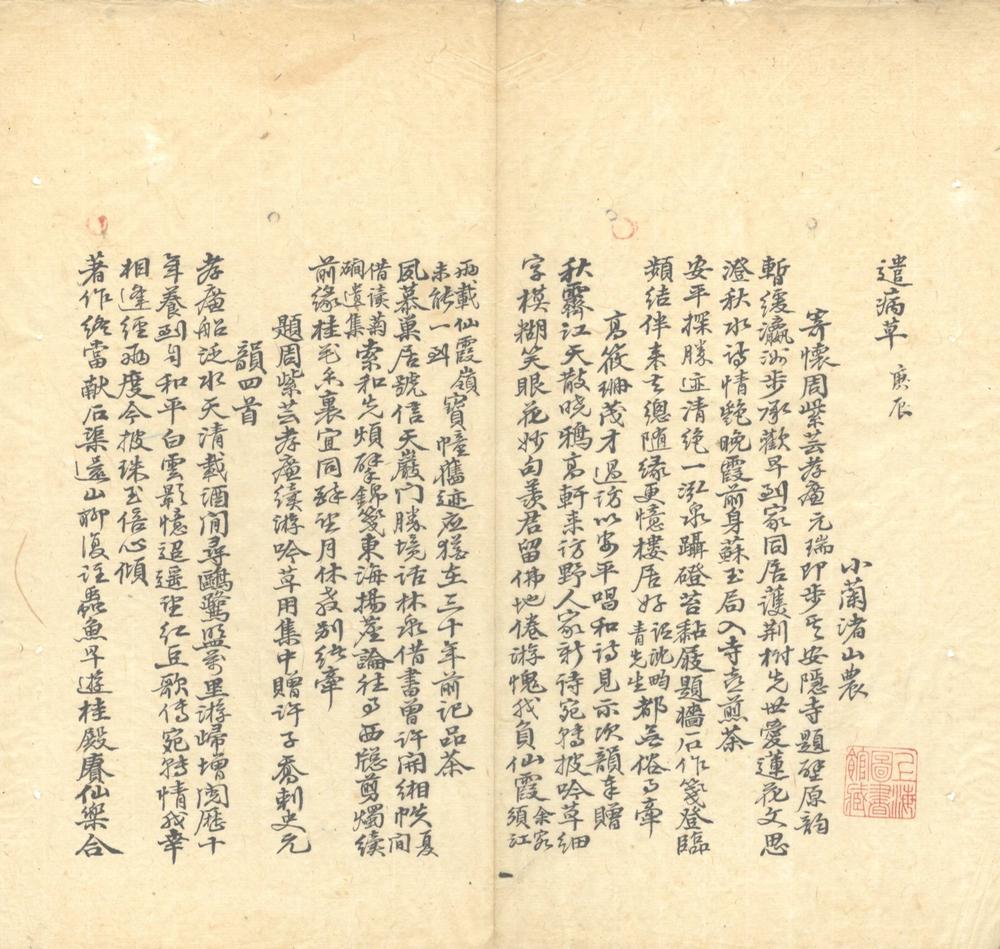 遣病草 庚辰
小蘭渚山農
寄懷周紫芸孝廉元瑞即步其安隱寺題壁原韵
暫緩瀛洲步承歡早到家同居護荆樹先世愛蓮花文思
澄秋水詩情艷晚霞前身蘇玉局入寺
煎茶
安平探勝迹清絶一泓泉躡磴苔黏屐題牆石作箋登臨
頻結伴來去總随緣更憶樓居好
詔沈畇青先生
都無俗事牽
高筱珊茂才過訪以安平唱和詩見示次韻奉贈
秋霽江天散曉鴉高軒来訪野人家新诗宛轉披吟草细
字模糊笑眼花妙句羨君留佛地倦游愧我負仙霞
余客須江
兩載仙霞嶺未能一到
寶幢舊迹应猶在三十年前记品茶
夙慕巢居號信天嚴门勝境话林泉借書曾许開緗帙
夏间借读菊磵遺集
索和先煩擘錦箋東海揚塵論往事西牕剪燭续
前缘桂花香裏宜同醉
月休教别绪牽
題周紫芸孝廉续游吟草用集中贈许子喬刺史元
韻四首
孝廉船泛水天清載酒閒尋鷗鷺盟萬里游歸增閲歷十
年養到自和平白雲影憶迢遥
红豆歌傳宛轉情我幸
相逢经兩度今披珠玉倍心傾
著作终當献石渠還山聊復注蟲魚早遊桂殿賡仙樂合
上海圖書館藏